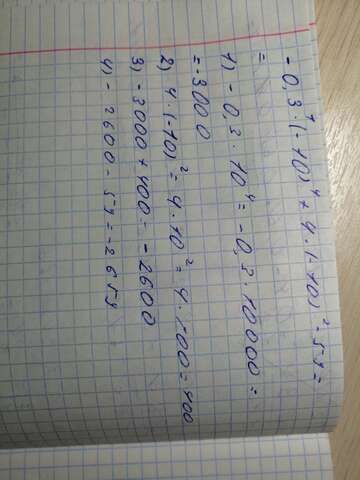 - 0,3 · (-10)⁴ + 4 · (-10)² - 54 =
=
1) - 0,3 · 10⁴ = - 0,3 · 10000 =
= -3000
2) 4 · (-10)² = 4 · 10² = 4 · 100 = 400
3) - 3000 + 400 = - 2600
4) - 2600 - 54 = - 2654